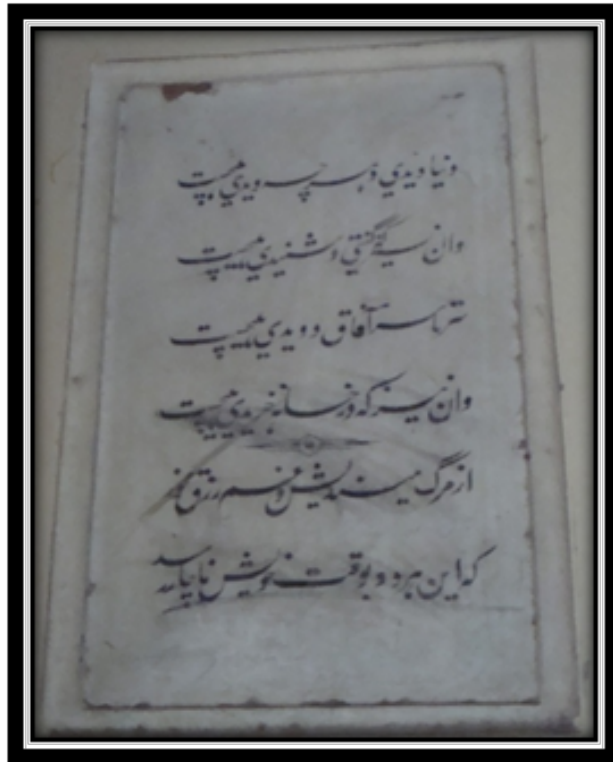 دنیا دیدی و هر چه دیدی هیچست
وان نیز که گفتی و شنیدی هیچست
سرتاسر آفاق دویدی هیچست
وان نیز که در خانه خزیدی هیچست
از مرگ میندیش و غم رزق مخور
که این هر دو بوقت خویش ناچار رسد